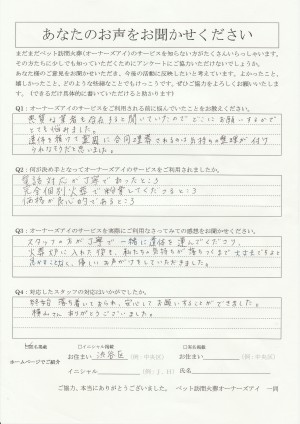 あなたのお声をお聞かせください
まだまだペット訪問火葬(オーナーズアイ)のサービスを知らない方がたくさんいらっしゃいます。
その方たちに少しでも知っていただくためにアンケートにご協力いただけないでしょうか。
あなた様のご意見をお聞かせいただき、今後の活動に反映したいと考えています。よかったこと、
嬉しかったこと、どのような些細なことでもけっこうです。ぜひご協力をよろしくお願いいたします。
(できるだけ具体的に書いていただけると助かります)
Q1:オーナーズアイのサービスをご利用される前に悩んでいたことをお教えください。
悪質な業者も存在すると聞いていたのでどこにお願いするかで
とても悩みました。
遺体を預けて霊園に合同埋葬されるのは気持ちの整理が付け
られなそうだと思いました。
Q2:何が決め手となってオーナーズアイのサービスをご利用されましたか。
電話対応が丁寧であったところ
完全個別火葬で粉骨してくださるところ
価格が良心的であるところ
Q3:オーナーズアイのサービスを実際にご利用なさってみての感想をお聞かせください。
スタッフの方が丁寧で一緒に遺体を運んでくださり、
火葬炉に入れた後も、私たちの気持ちが落ちつくまで大丈夫ですよと
優しいお声がけをしていただきました。
Q4:対応したスタッフの対応はいかがでしたか。
終始落ち着いておられ、安心してお願いすることができました。
横山さんありがとうございました。
ホームページでご紹介
匿名掲載 イニシャル掲載 実名掲載
お住まい 渋谷区 (例:中央区) お住まい (例:中央区)
イニシャル (例:J、H) 氏名
ご協力、本当にありがとうございました。 ペット訪問火葬オーナーズアイ 一同